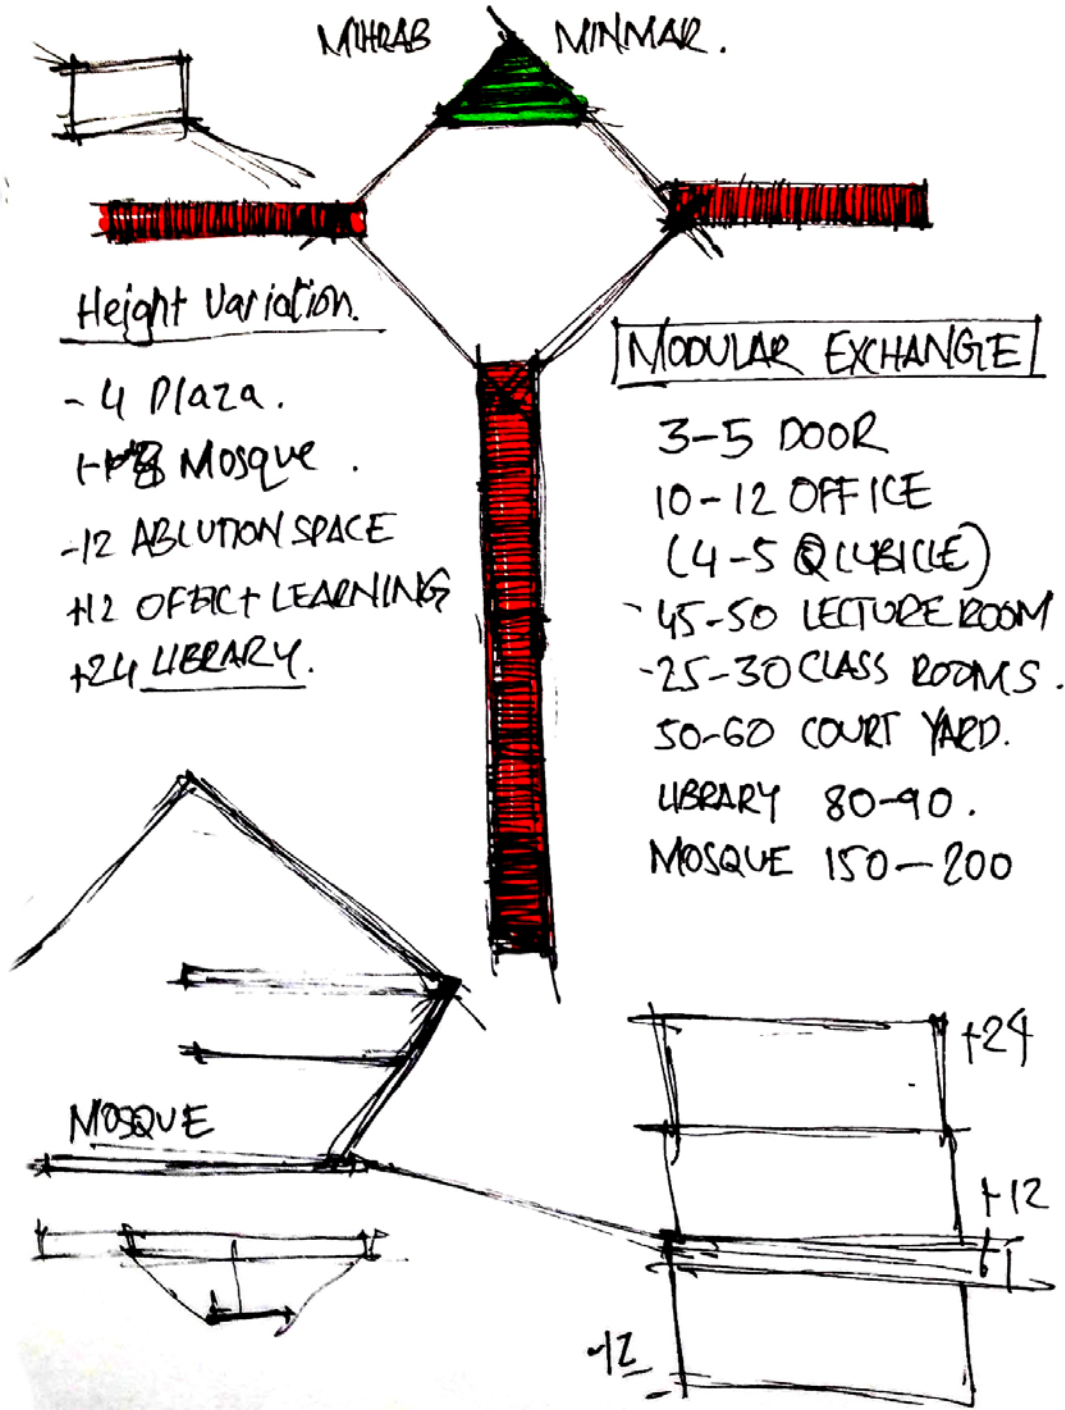 MIHRAB MINMAR.
Height Variation.
-4 Plaza.
Mosque.
-12 ABLUTION SPACE
+12 OFFICE + LEARNING
+24 LIBRARY.
MODULAR EXCHANGE
3-5 DOOR
10-12 OFFICE
(4-5 CUBICLE)
-45-50 LECTURE ROOM
-25-30 CLASS ROOMS.
50-60 COURT YARD.
LIBRARY 80-90.
MOSQUE 150-200
MOSQUE
+24
+12
-12